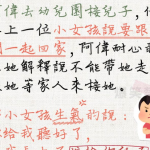 阿偉去幼兒園接兒子,
上一位小女孩說要跟
一起回家,阿偉耐心
她解釋說不能帶她走
她等家人來接她。
小女孩生氣的說:
給我聽好了,